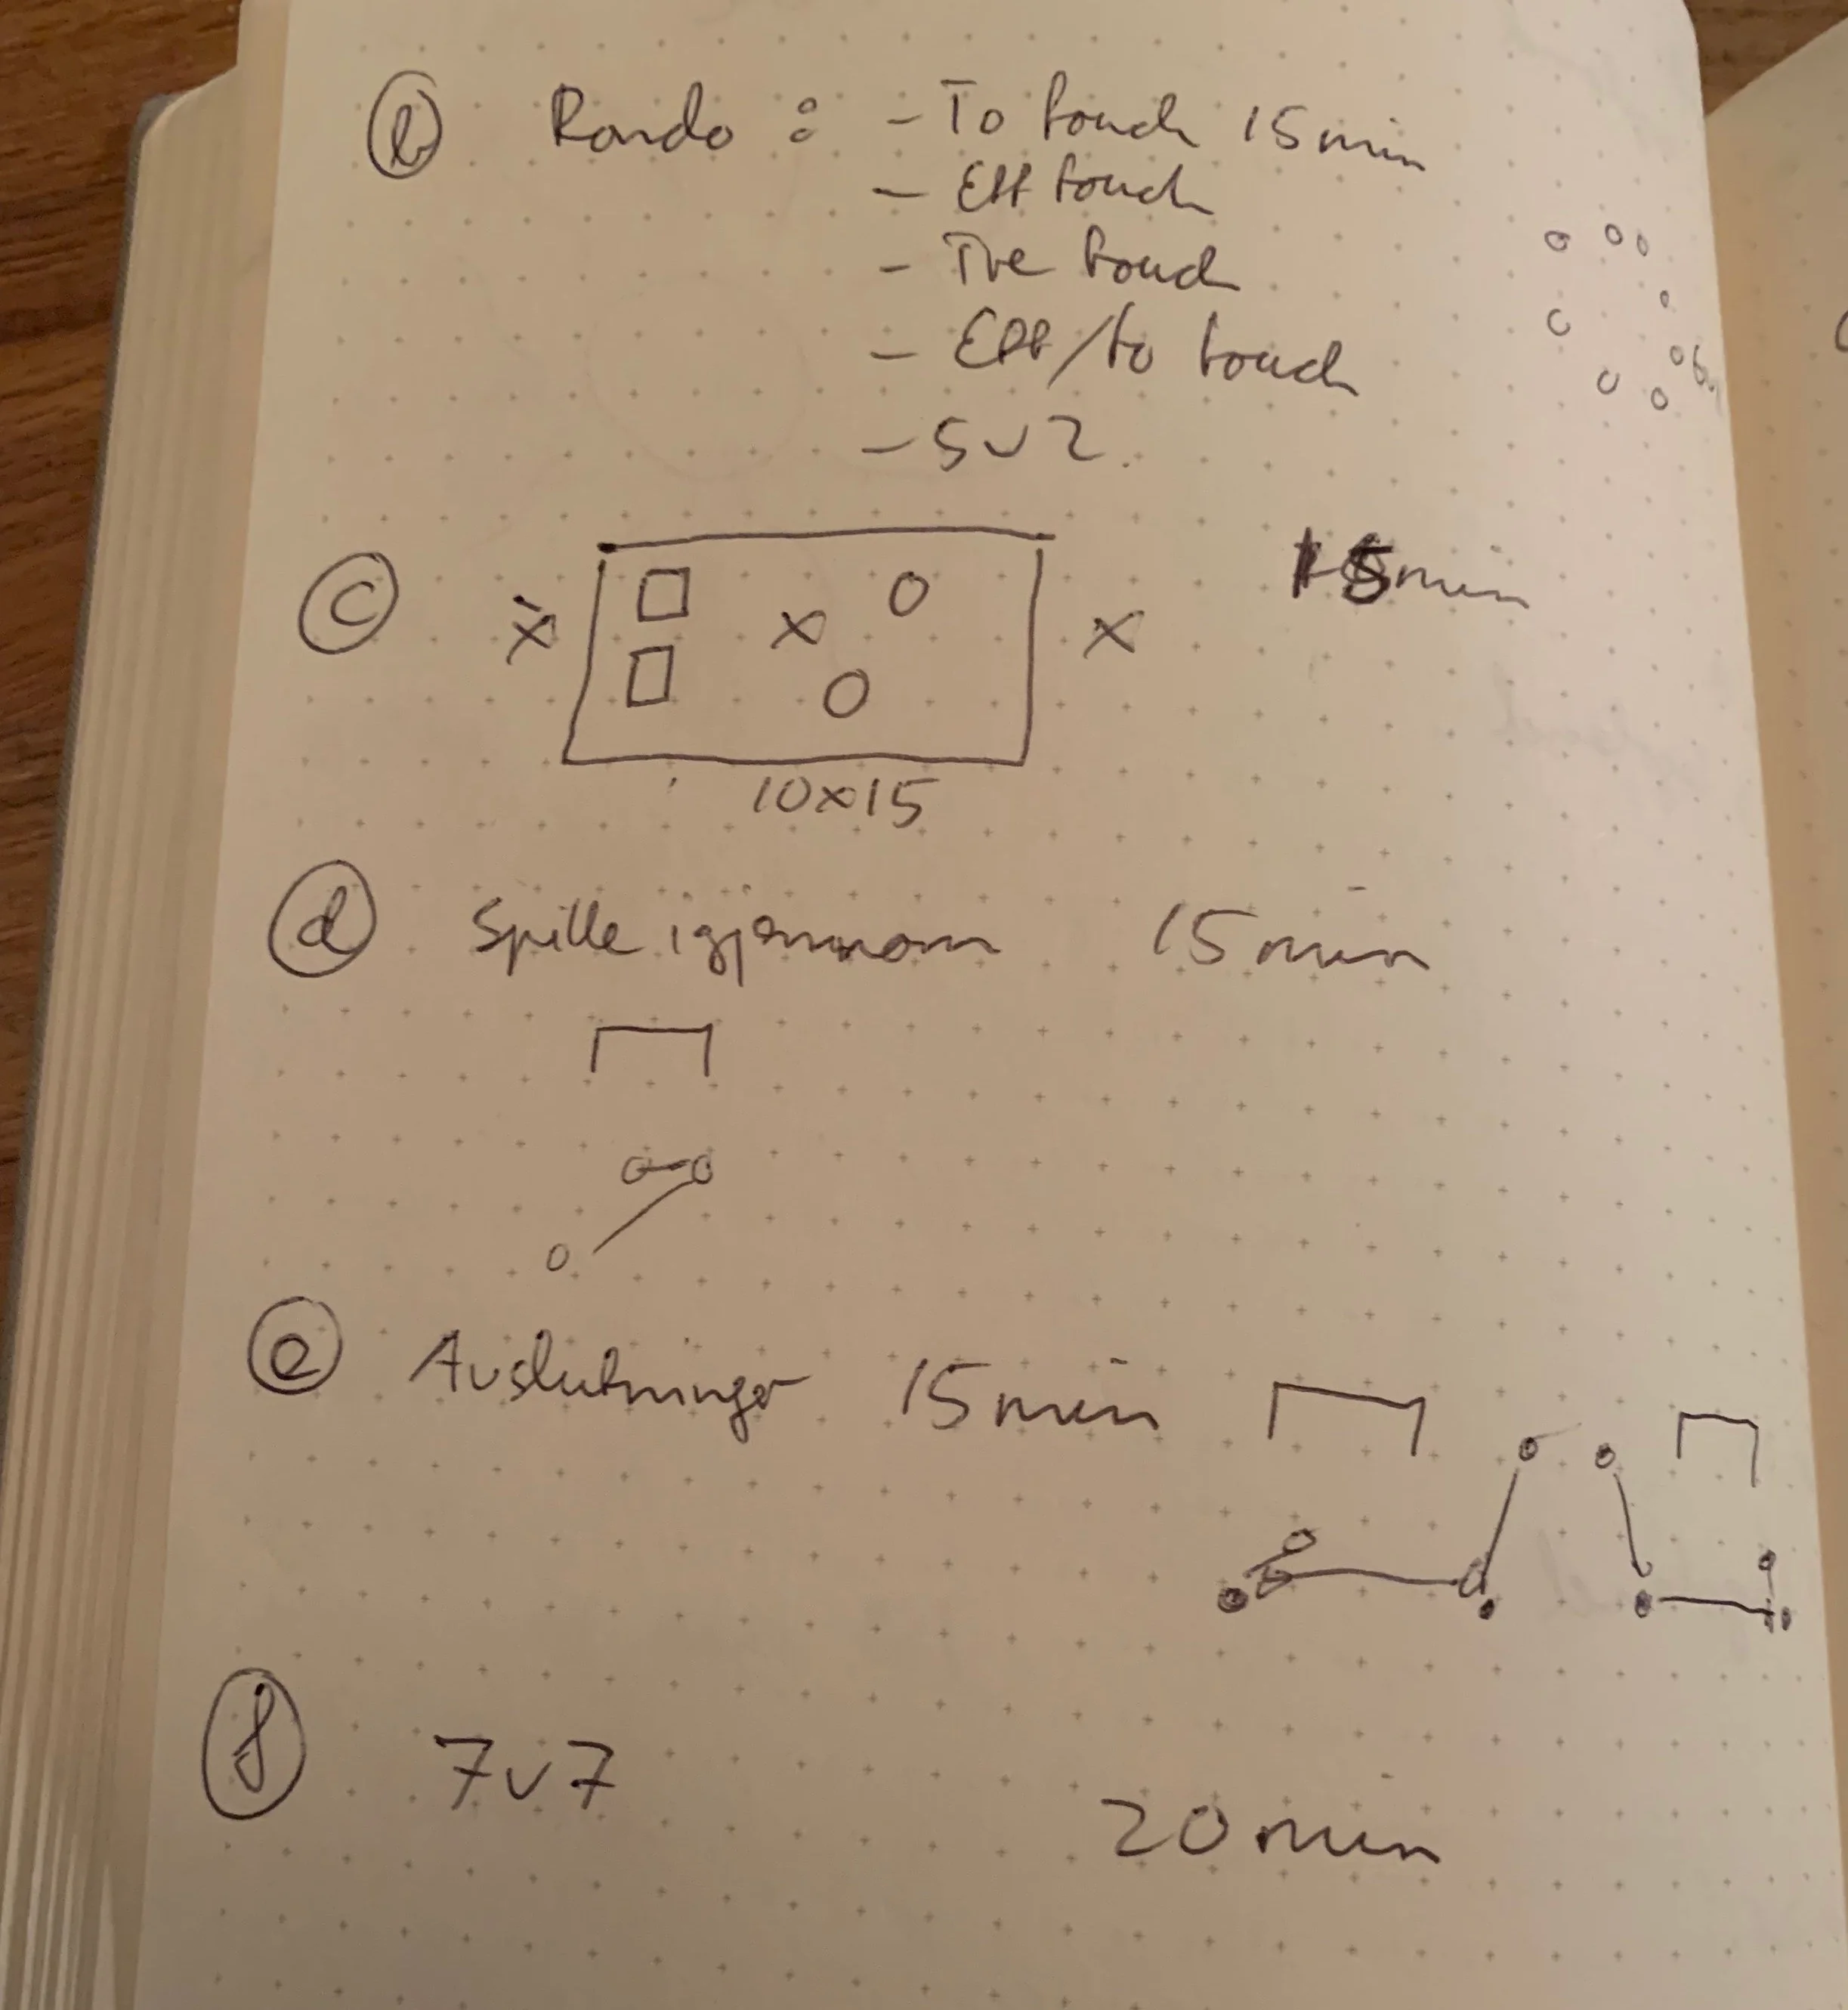 b Rondo : - To touch 15 min
- Ett touch
- Tre touch
- Ett/to touch
- 5v2.
c 15 min
x x x
10x15
d Spille igjennom 15 min
e Avslutninger 15 min
f 7v7 20 min